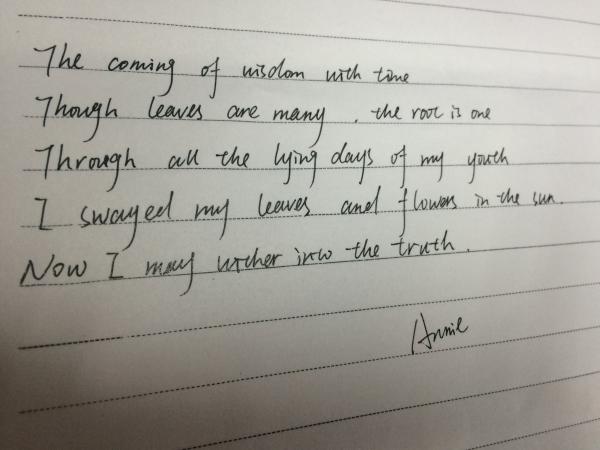 The coming of wisdom with time
Though leaves are many, the root is one
Through all the lying days of my youth
I swayed my leaves and flowers in the sun.
Now I may wither into the truth.
Annie